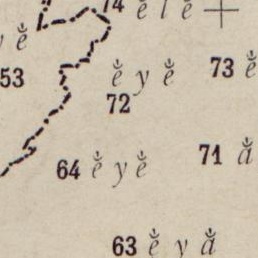 74 ĕ́ l ĕ́
y ĕ́
53
ĕ́ y ĕ́
73 ĕ́
72
64 ĕ́ y ĕ́
71 ắ
63 ĕ́ y ắ